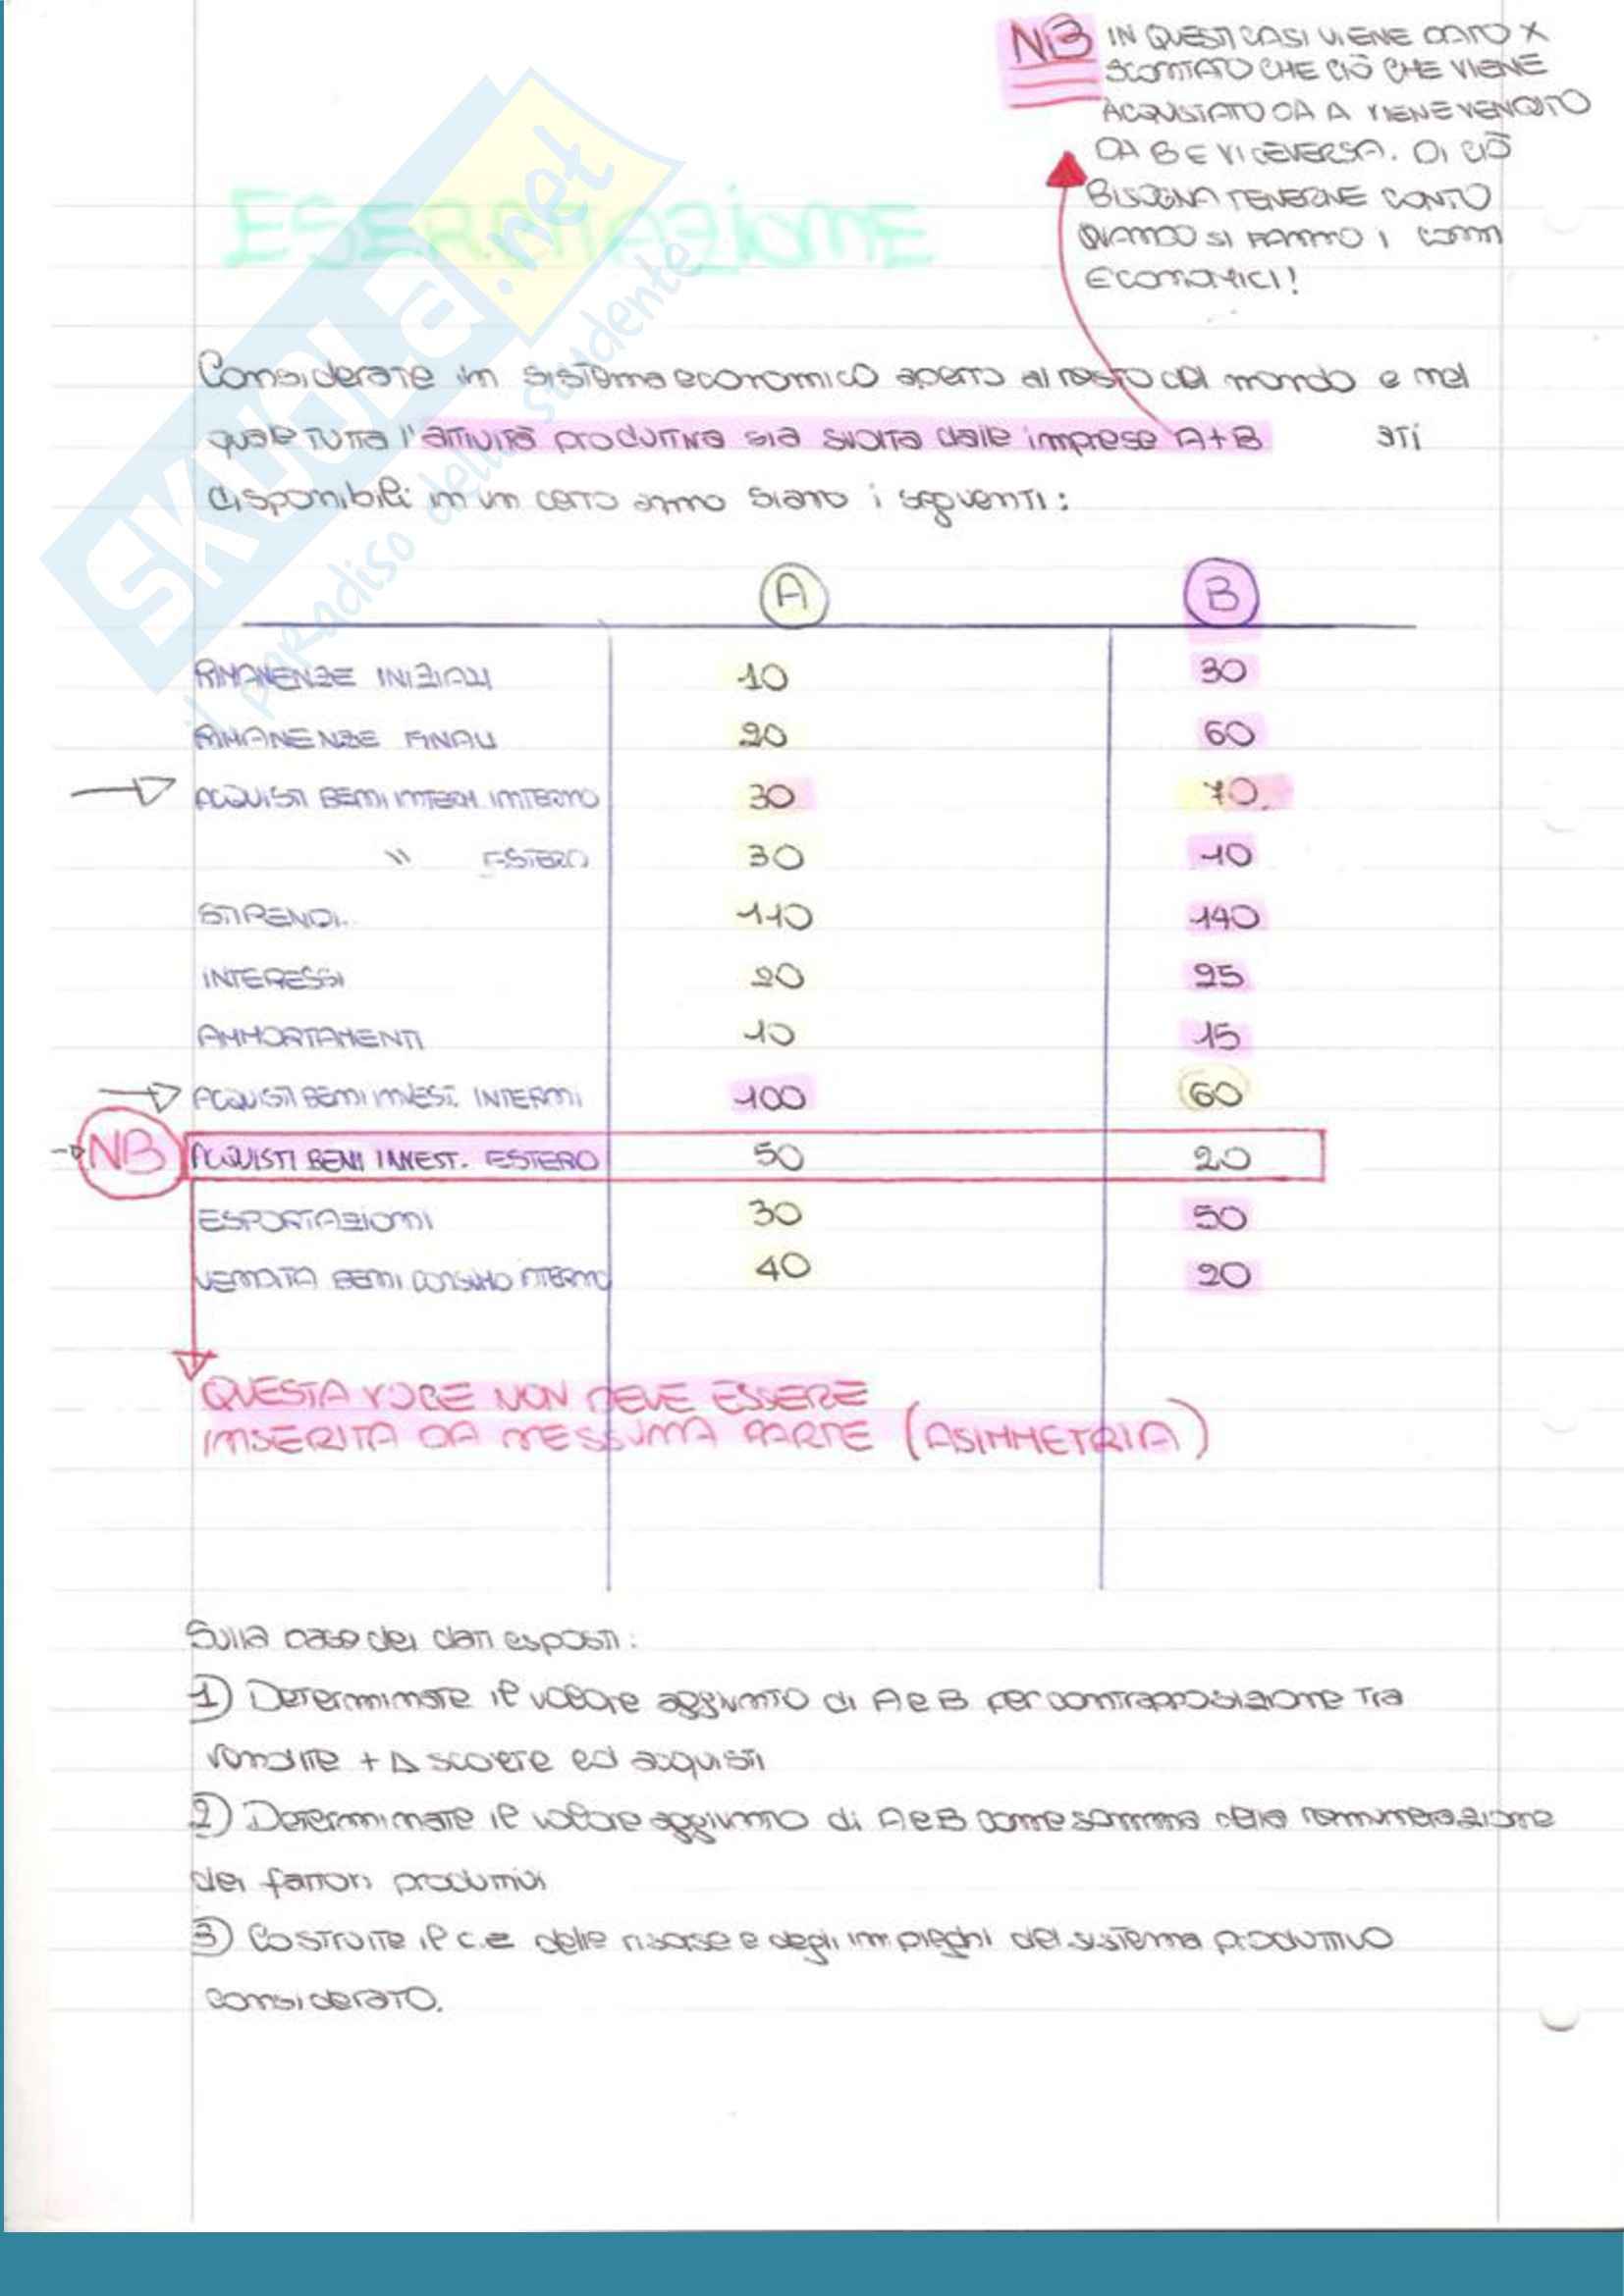 NB IN QUESTI CASI VIENE DATO X
SCONTATO CHE CIÒ CHE VIENE
ACQUISTATO DA A VIENE VENDUTO
DA B E VICEVERSA. DI CIÒ
BISOGNA TENERNE CONTO
QUANDO SI FANNO I CONTI
ECONOMICI!
ESERCITAZIONE
SKUOLA.net
il paradiso dello studente
Considerate un sistema economico aperto al resto del mondo e nel
quale tutta l'attività produttiva sia svolta dalle imprese A+B ati
disponibili in un certo anno siano i seguenti:
A B
RIMANENZE INIZIALI 10 30
RIMANENZE FINALI 20 60
ACQUISTI BENI INTERM INTERNO 30 70
" ESTERO 30 10
STIPENDI 110 140
INTERESSI 20 25
AMMORTAMENTI 10 15
ACQUISTI BENI INVEST. INTERNI 100 60
NB ACQUISTI BENI INVEST. ESTERO 50 20
ESPORTAZIONI 30 50
VENDITA BENI CONSUMO INTERNO 40 20
QUESTA VOCE NON DEVE ESSERE
INSERITA DA NESSUNA PARTE (ASIMMETRIA)
Sulla base dei dati esposti:
1) Determinate il valore aggiunto di A e B per contrapposizione tra
vendite + Δ scorte ed acquisti
2) Determinate il valore aggiunto di A e B come somma della remunerazione
dei fattori produttivi
3) Costruite il c.e delle risorse e degli impieghi del sistema produttivo
considerato.